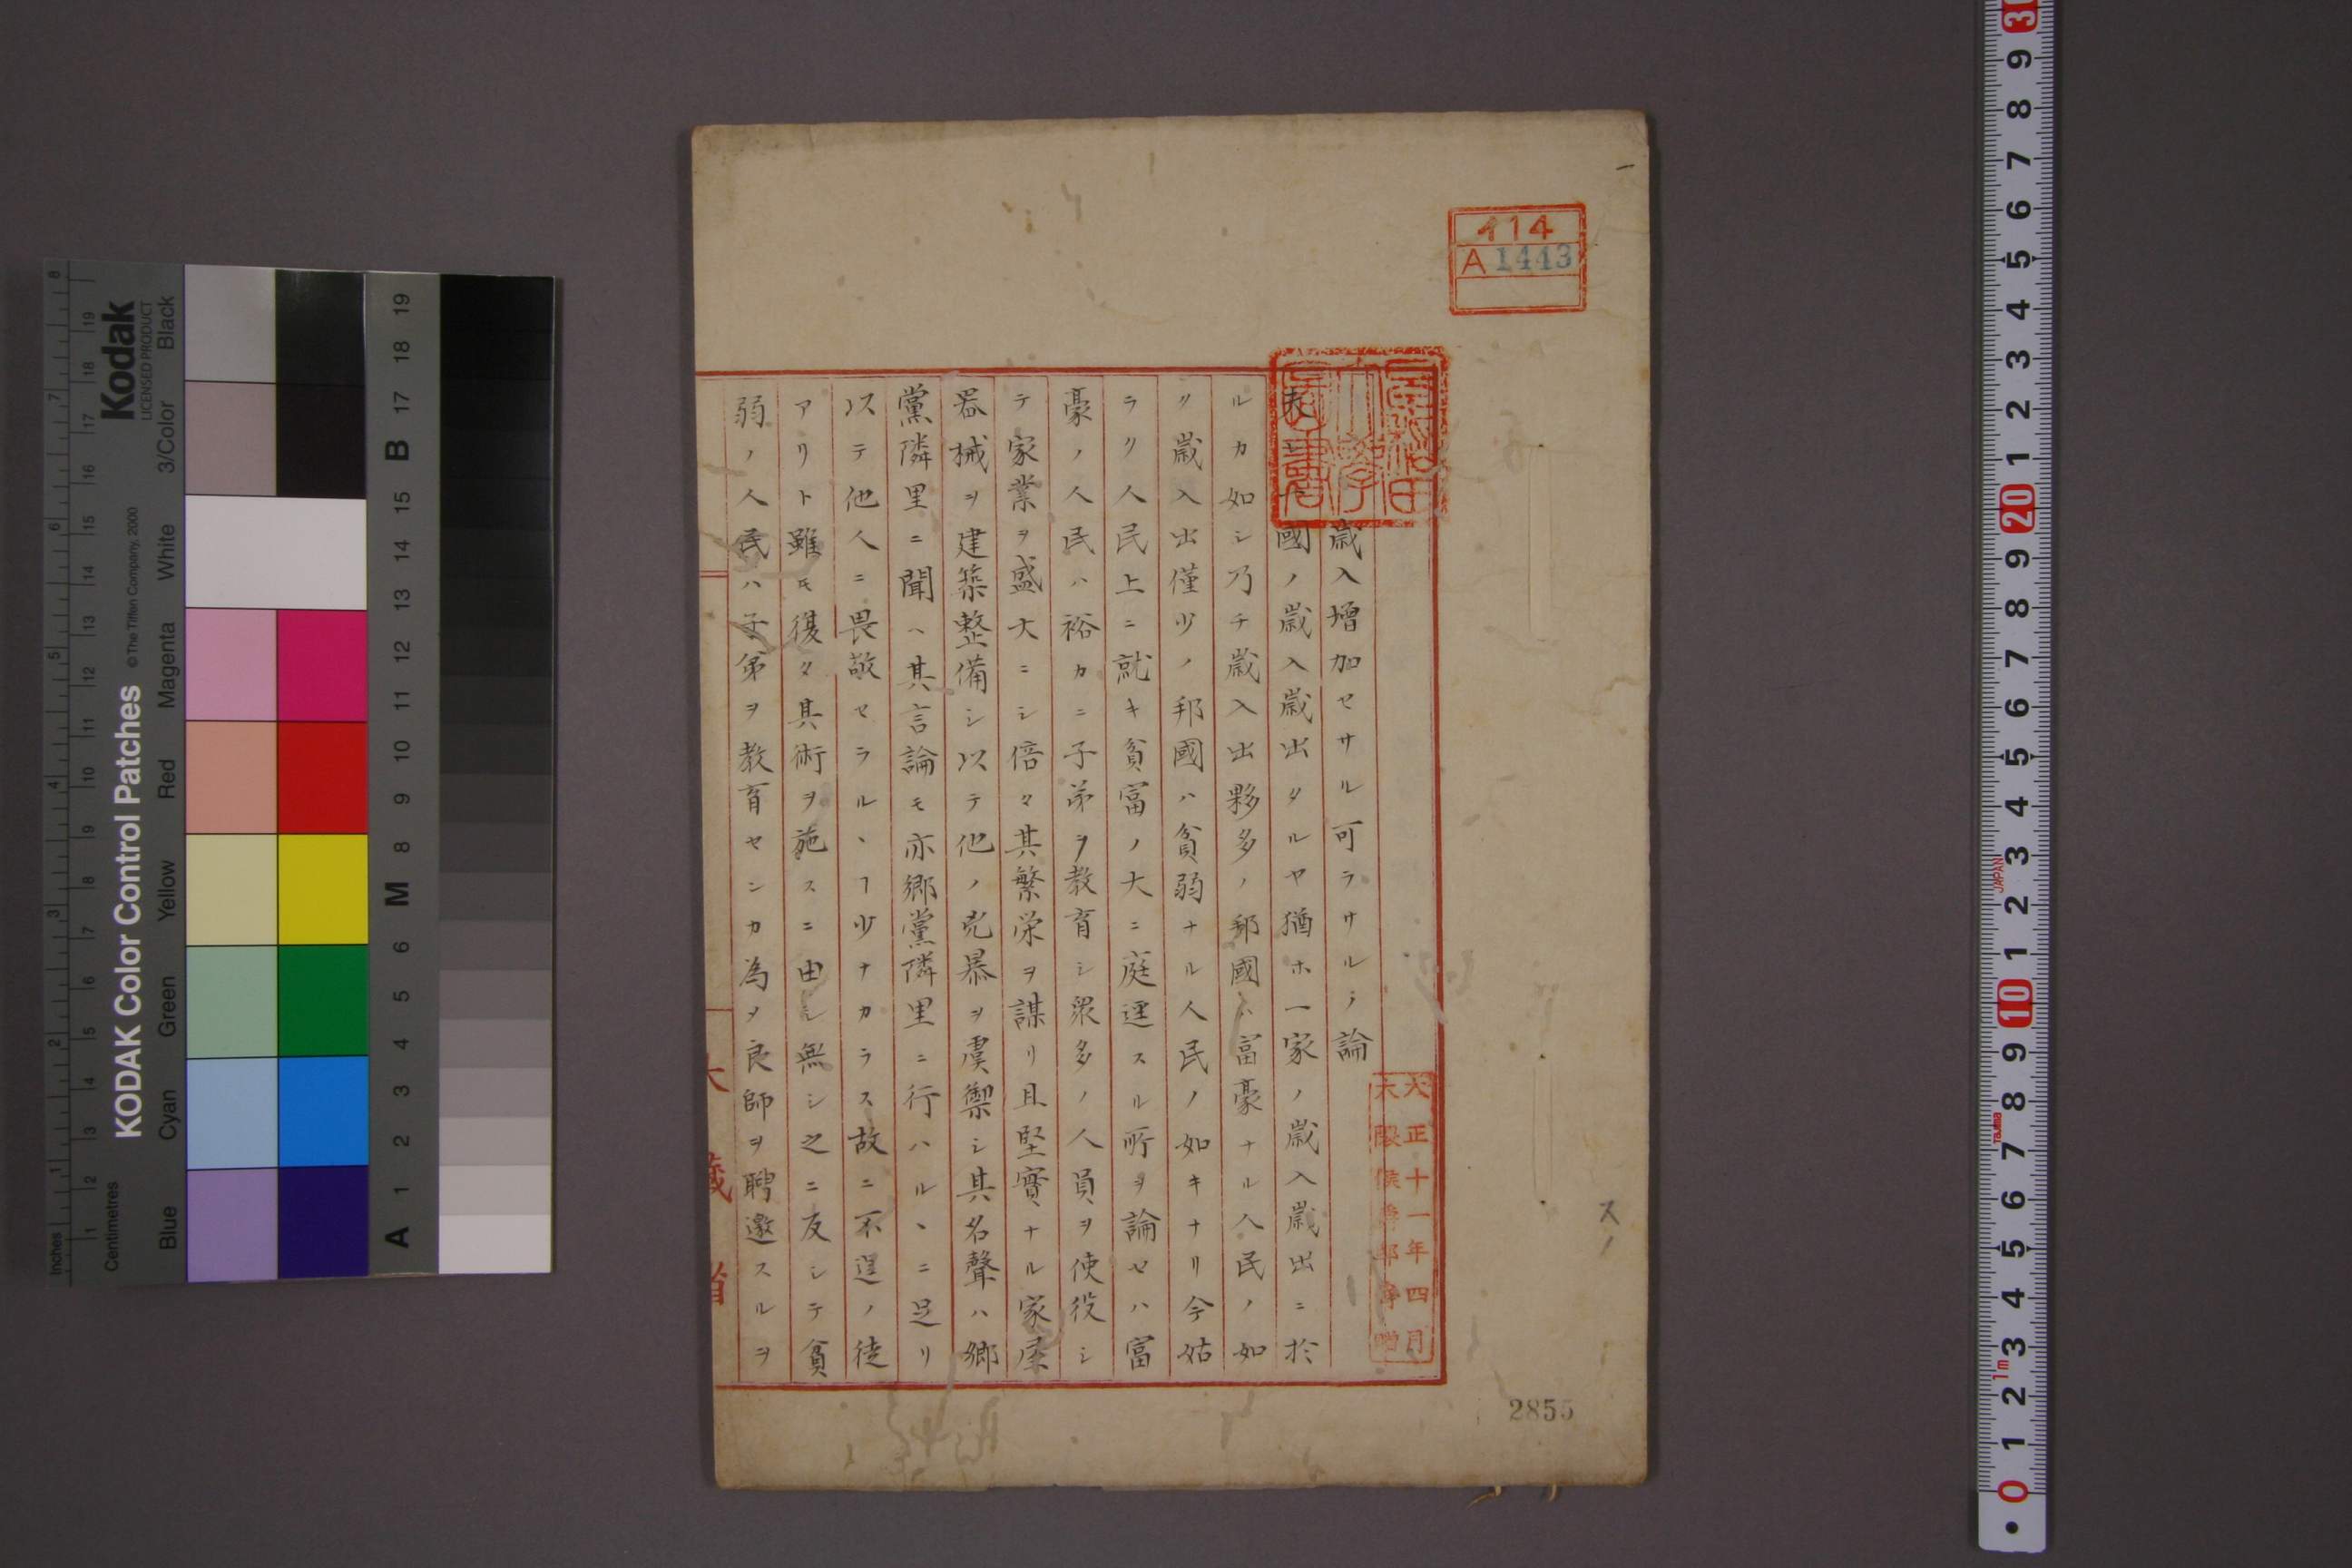 イ14
A 1443
早稲田
大學
圖書
歳入増加セサル可ラサルノ論
夫レ一國ノ歳入歳出タルヤ猶ホ一家ノ歳入歳出ニ於
ルカ如シ乃チ歳入出夥多ノ邦國ハ富豪ナル人民ノ如
ク歳入出僅少ノ邦國ハ貧弱ナル人民ノ如キナリ今姑
ラク人民上ニ就キ貧富ノ大ニ庭逕スル所ヲ論セハ富
豪ノ人民ハ裕カニ子弟ヲ教育シ衆多ノ人員ヲ使役シ
テ家業ヲ盛大ニシ倍々其繁栄ヲ謀リ且堅實ナル家屋
器械ヲ建築整備シ以テ他ノ兇暴ヲ虞禦シ其名聲ハ郷
黨隣里ニ聞ヘ其言論モ亦郷黨隣里ニ行ハルヽニ足リ
以テ他人ニ畏敬セラルヽヿ少ナカラス故ニ不逞ノ徒
アリト雖モ復タ其術ヲ施スニ由シ無シ之ニ反シテ貧
弱ノ人民ハ子弟ヲ教育センカ為メ良師ヲ聘邀スルヲ
大藏省
大正十一年四月
大隈侯爵邸寄贈
2855
KODAK Color Control Patches
© The Tiffen Company, 2000
Kodak
LICENSED PRODUCT
Inches
Centimetres
Blue
Cyan
Green
Yellow
Red
Magenta
White
3/Color
Black
A 1 2 3 4 5 6 M 8 9 10 11 12 13 14 15 B 17 18 19
JAPAN
TAJIMA
1m